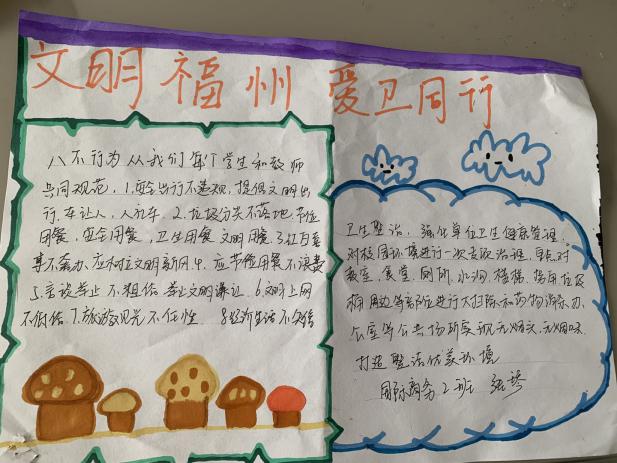 文明福州 爱卫同行
八不行为从我们每个学生和教师
共同规范，1.安全出行不违规，提倡文明出
行，车让人，人礼车。2.垃圾分类不落地，节位
用餐，安全用餐，卫生用餐 文明用餐。3.红白喜
事不奢办，应树立文明新风。4.应节俭用餐不浪费
5.言谈举止不粗俗 举止文明谦让 6.文明上网
不低俗 7.旅游观光不任性 8.经济生活不失信
卫生整治，强化单位卫生健康管理
对校园环境进行一次大改治理，早点对
教室、食堂、厕所、水沟、楼梯、垃圾
桶周边等部位进行大扫除和药物消杀，办
公室等公共场所实现无烟头、无烟味
打造整洁优美环境
国际商务2班 张